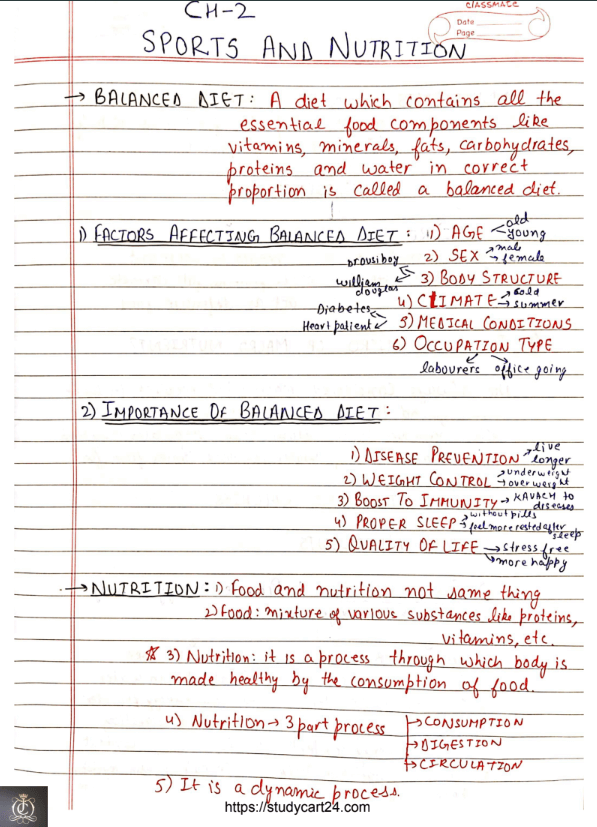 CH-2
CLASSMATE
Date
Page
SPORTS AND NUTRITION
→ BALANCED DIET : A diet which contains all the
essential food components like
vitamins, minerals, fats, carbohydrates,
proteins and water in correct
proportion is called a balanced diet.
1) FACTORS AFFECTING BALANCED DIET : 1) AGE old
young
2) SEX → male
→ female
brousiboy
3) BODY STRUCTURE
william
douglas
4) CLIMATE → cold
→ summer
Diabetes
Heart patient
5) MEDICAL CONDITIONS
6) OCCUPATION TYPE
labourers office going
2) IMPORTANCE OF BALANCED DIET :
1) DISEASE PREVENTION → live
longer
2) WEIGHT CONTROL → underweight
→ over weight
3) BOOST TO IMMUNITY → KAVACH to
diseases
4) PROPER SLEEP → without pills
feel more rested after
sleep
5) QUALITY OF LIFE → stress free
→ more happy
→ NUTRITION : 1) Food and nutrition not same thing
2) Food : mixture of various substances like proteins,
vitamins, etc.
☆ 3) Nutrition : it is a process through which body is
made healthy by the consumption of food.
4) Nutrition → 3 part process → CONSUMPTION
→ DIGESTION
→ CIRCULATION
5) It is a dynamic process.
https://studycart24.com